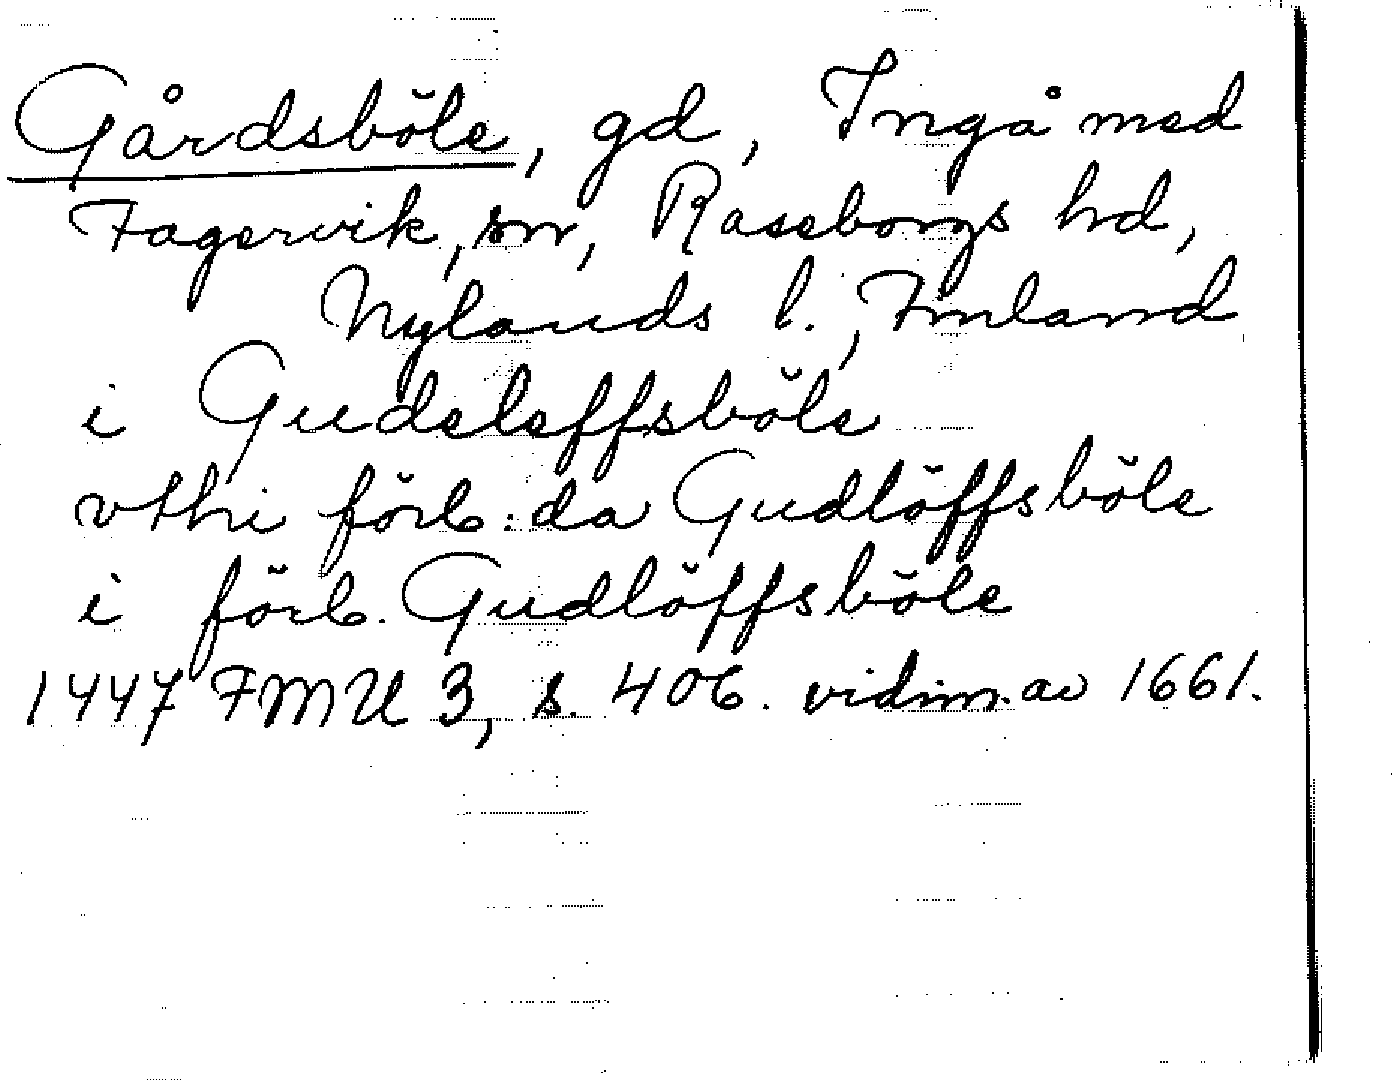 Gårdsböle, gd, Ingå med
Fagervik, sn, Raseborgs hd,
Nylands l., Finland
i Gudeleffsböle
vthi förb:da Gudlöffsböle
i förb. Gudlöffsböle
1447 FMU 3, s. 406. vidim. av 1661.